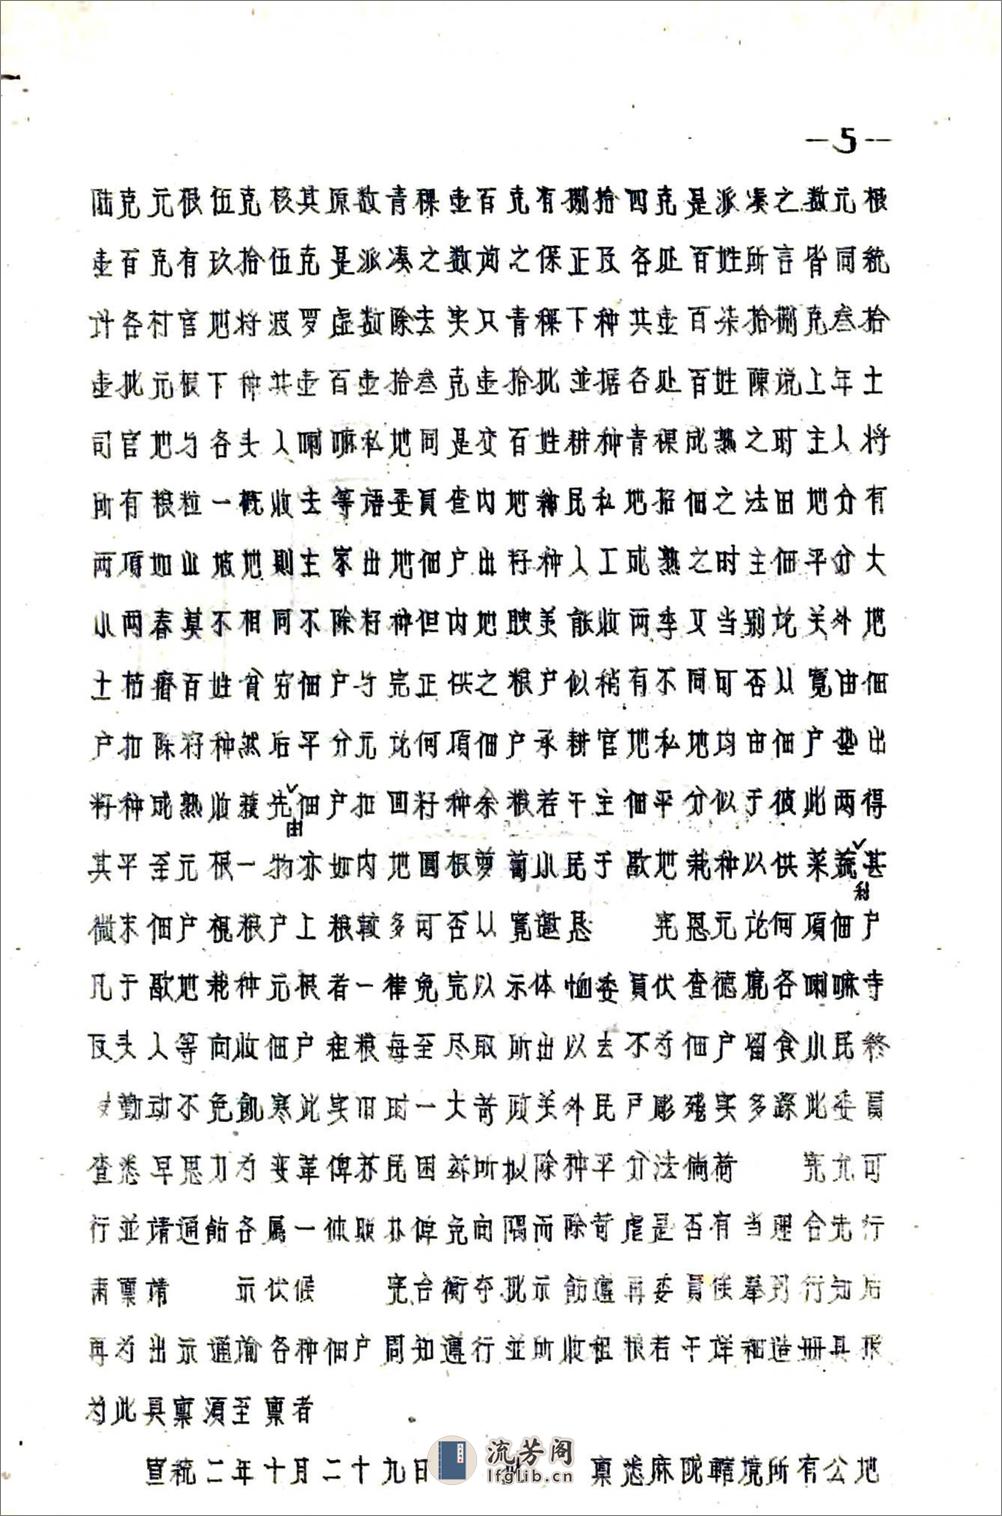 —5—
陆克元根伍克核其原数青稞壶百克有捌拾四克是派凑之数元根
壶百克有玖拾伍克是派凑之数询之保正及各处百姓所言皆同统
计各村官地将波罗虚数除去实只青稞下种共壶百柒拾捌克叁拾
壶批元根下种共壶百壶拾叁克壶拾批並据各处百姓陳说上年土
司官地与各头人喇嘛私地同是交百姓耕种青稞成熟之时主人将
所有粮粒一概收去等语委員查内地种民私地招佃之法田地分有
两項如山坡地则主家出地佃户出籽种人工成熟之时主佃平分大
小两春莫不相同不除籽种但内地腴美能收两季又当别论关外地
土枯瘠百姓貧穷佃户与完正供之粮户似稍有不同可否从寬由佃
户扣除籽种然后平分元论何項佃户承耕官地私地均由佃户墊出
籽种成熟收获先由佃户扣回籽种余粮若干主佃平分似于彼此两得
其平至元根一物亦如内地圆根萝蔔小民于歇地栽种以供菜蔬利甚
微末佃户視粮户上粮較多可否从寬邀恳 宪恩元论何項佃户
凡于歇地栽种元根者一律免完以示体恤委員伏查德境各喇嘛寺
及头人等向收佃户租粮每至尽取所出以去不为佃户留食小民終
岁勤动不免飢寒此实旧时一大苛政关外民户彫残实多踩此委員
查悉早思力为变革俾苏民困兹所拟除种平分法倘荷 宪允可
行並请通飭各属一体联办俾免向隅而除苛虐是否有当理合先行
肃禀请 示伏候 宪台衡夺批示飭遵再委員俟奉到行知后
再为出示通瑜各种佃户周知遵行並所收租粮若干详细造册具报
为此具禀須至禀者
宣统二年十月二十九日 禀悉麻陇轄境所有公地
流芳阁
lfglib.cn